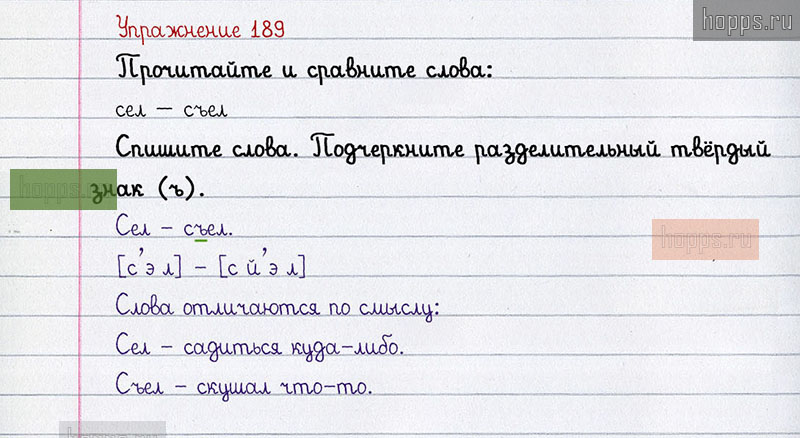 hopps.ru
Упражнение 189
Прочитайте и сравните слова:
сел — съел
Спишите слова. Подчеркните разделительный твёрдый
hopps.ru
знак (ъ).
Сел - съел.
hopps.ru
[с'э л] - [с й'э л]
Слова отличаются по смыслу:
Сел - садиться куда-либо.
Съел - скушал что-то.
hopps.ru